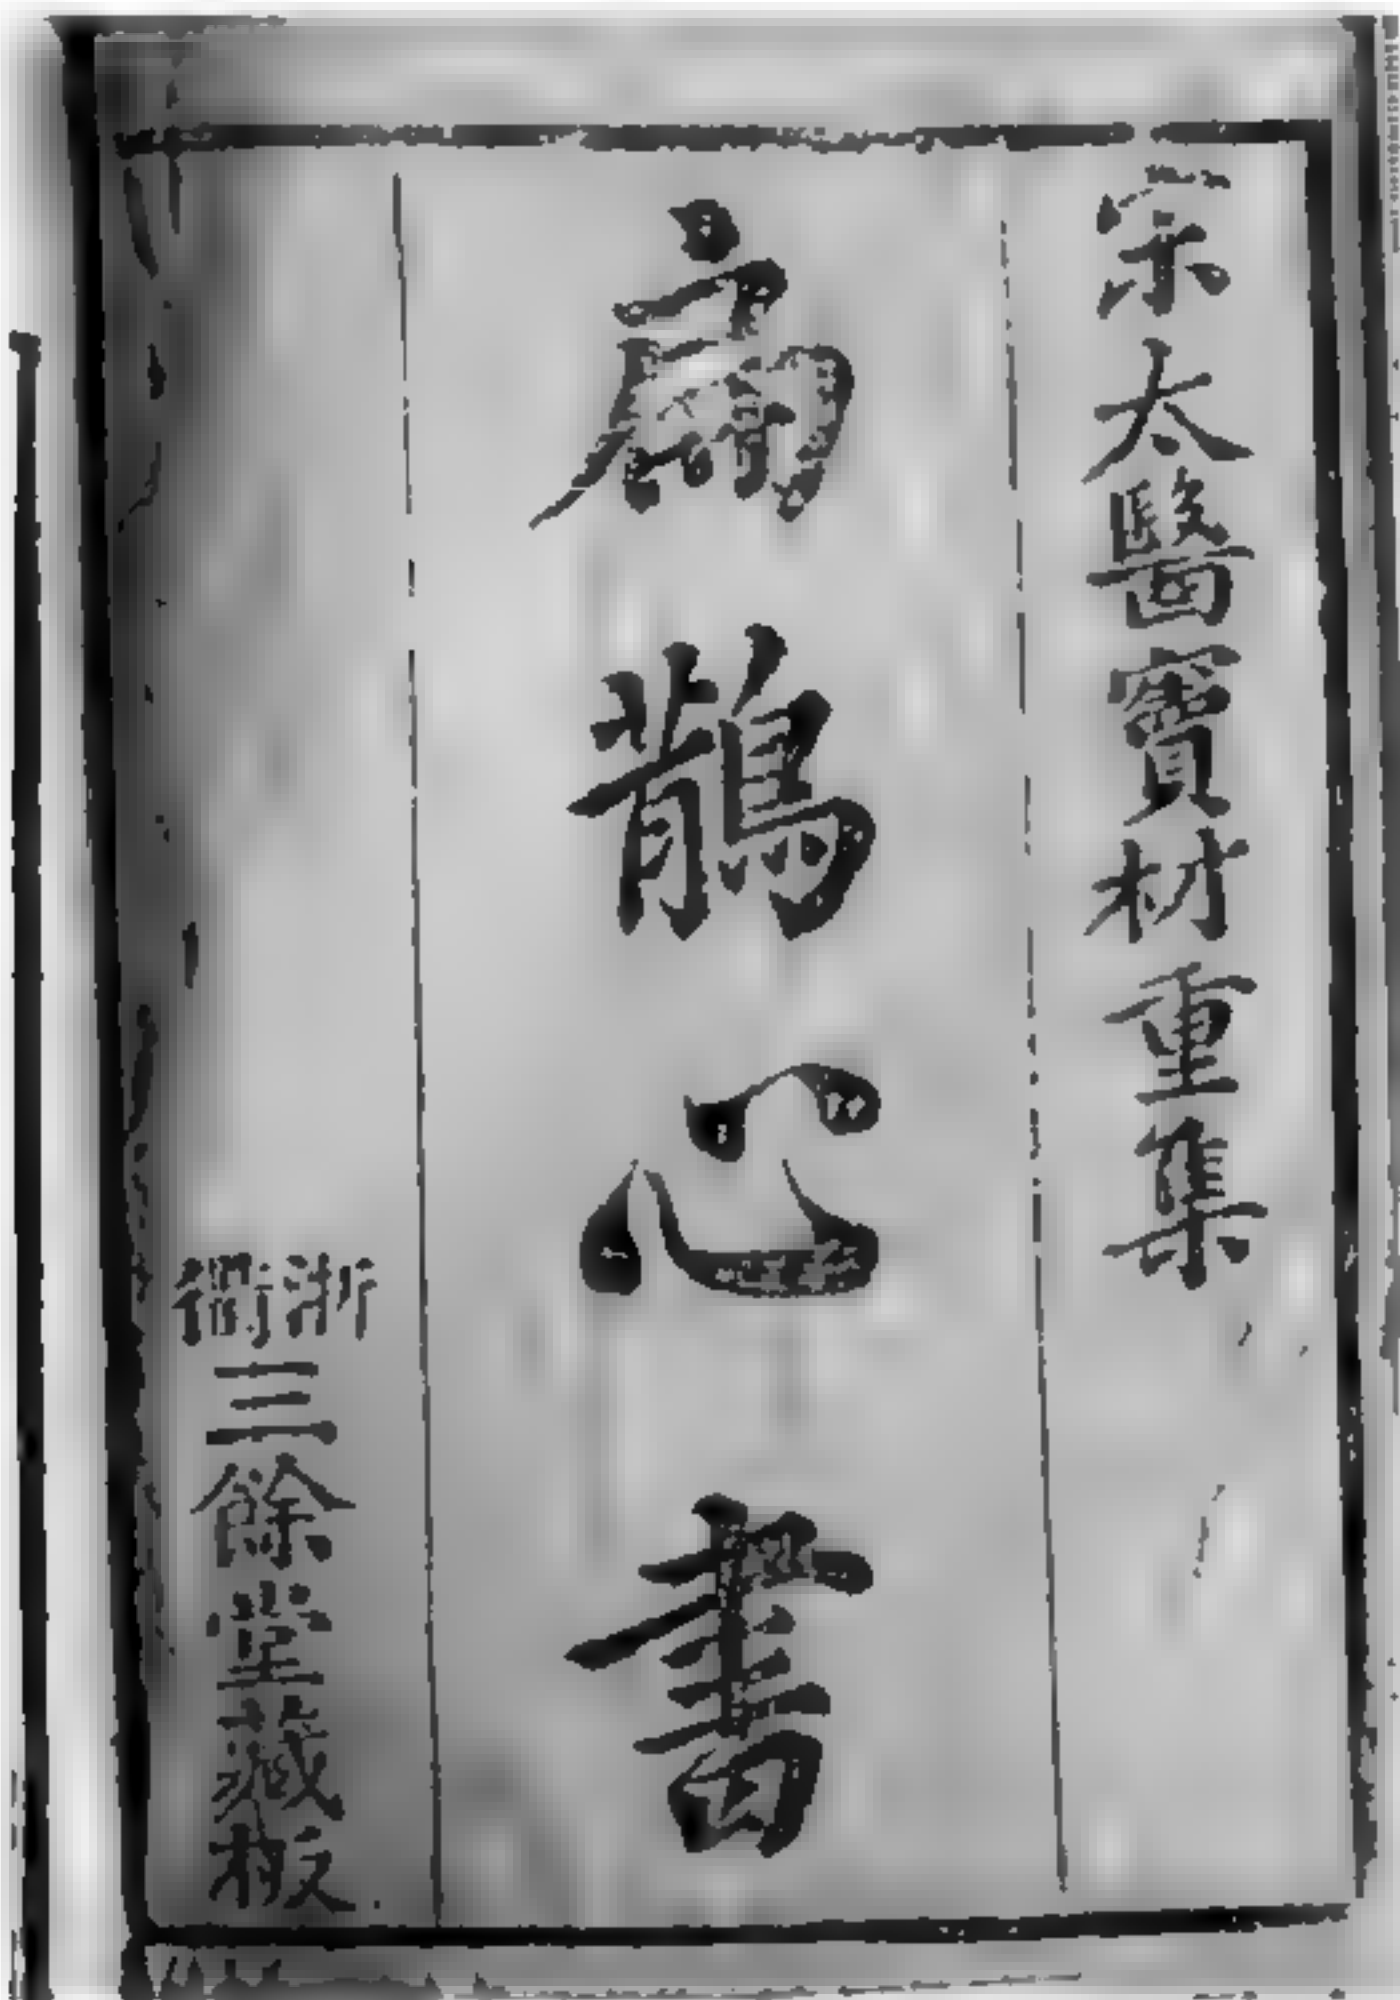 宋太醫竇材重集
扁鵲心書
浙衢三餘堂藏板